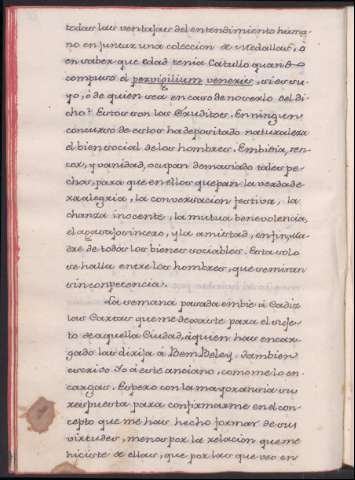 todas las ventajas del entendimiento huma-
no en juntar una coleccion de Medallas, o
en saber que edad tenia Catullo quando
compuso el pervigilium veneris, si es su-
yo, ò de quien sea en caso de no serlo del di-
cho? Estos son los Eruditos. En ningun
concurso de estos ha depositado naturaleza
el bien social de los hombres. Embidia, ren-
cor, y vanidad, ocupan demasiado tales pe-
chos, para que en ellos quepan la verdade-
ra alegria, la conversacion festiva, la
chanza inocente, la mutua benevolencia,
el agasajo sincero, y la amistad, en fin, Ma-
dre de todos los bienes sociables. Esta solo
se halla entre los hombres, que se miran
sin competencia.
La semana pasada embiè à Cadiz
las Cartas que me dexaste para el suge-
to de aquella Ciudad, à quien has encar-
gado las dirija à Ben-Beley. Tambien
escrivo Yo à este anciano, como me lo en-
cargas. Espero con la mayor ansia su
respuesta para confirmarme en el con-
cepto que me has hecho formar de sus
virtudes, menos por la relacion que me
hiciste de ellas, que por las que veo en